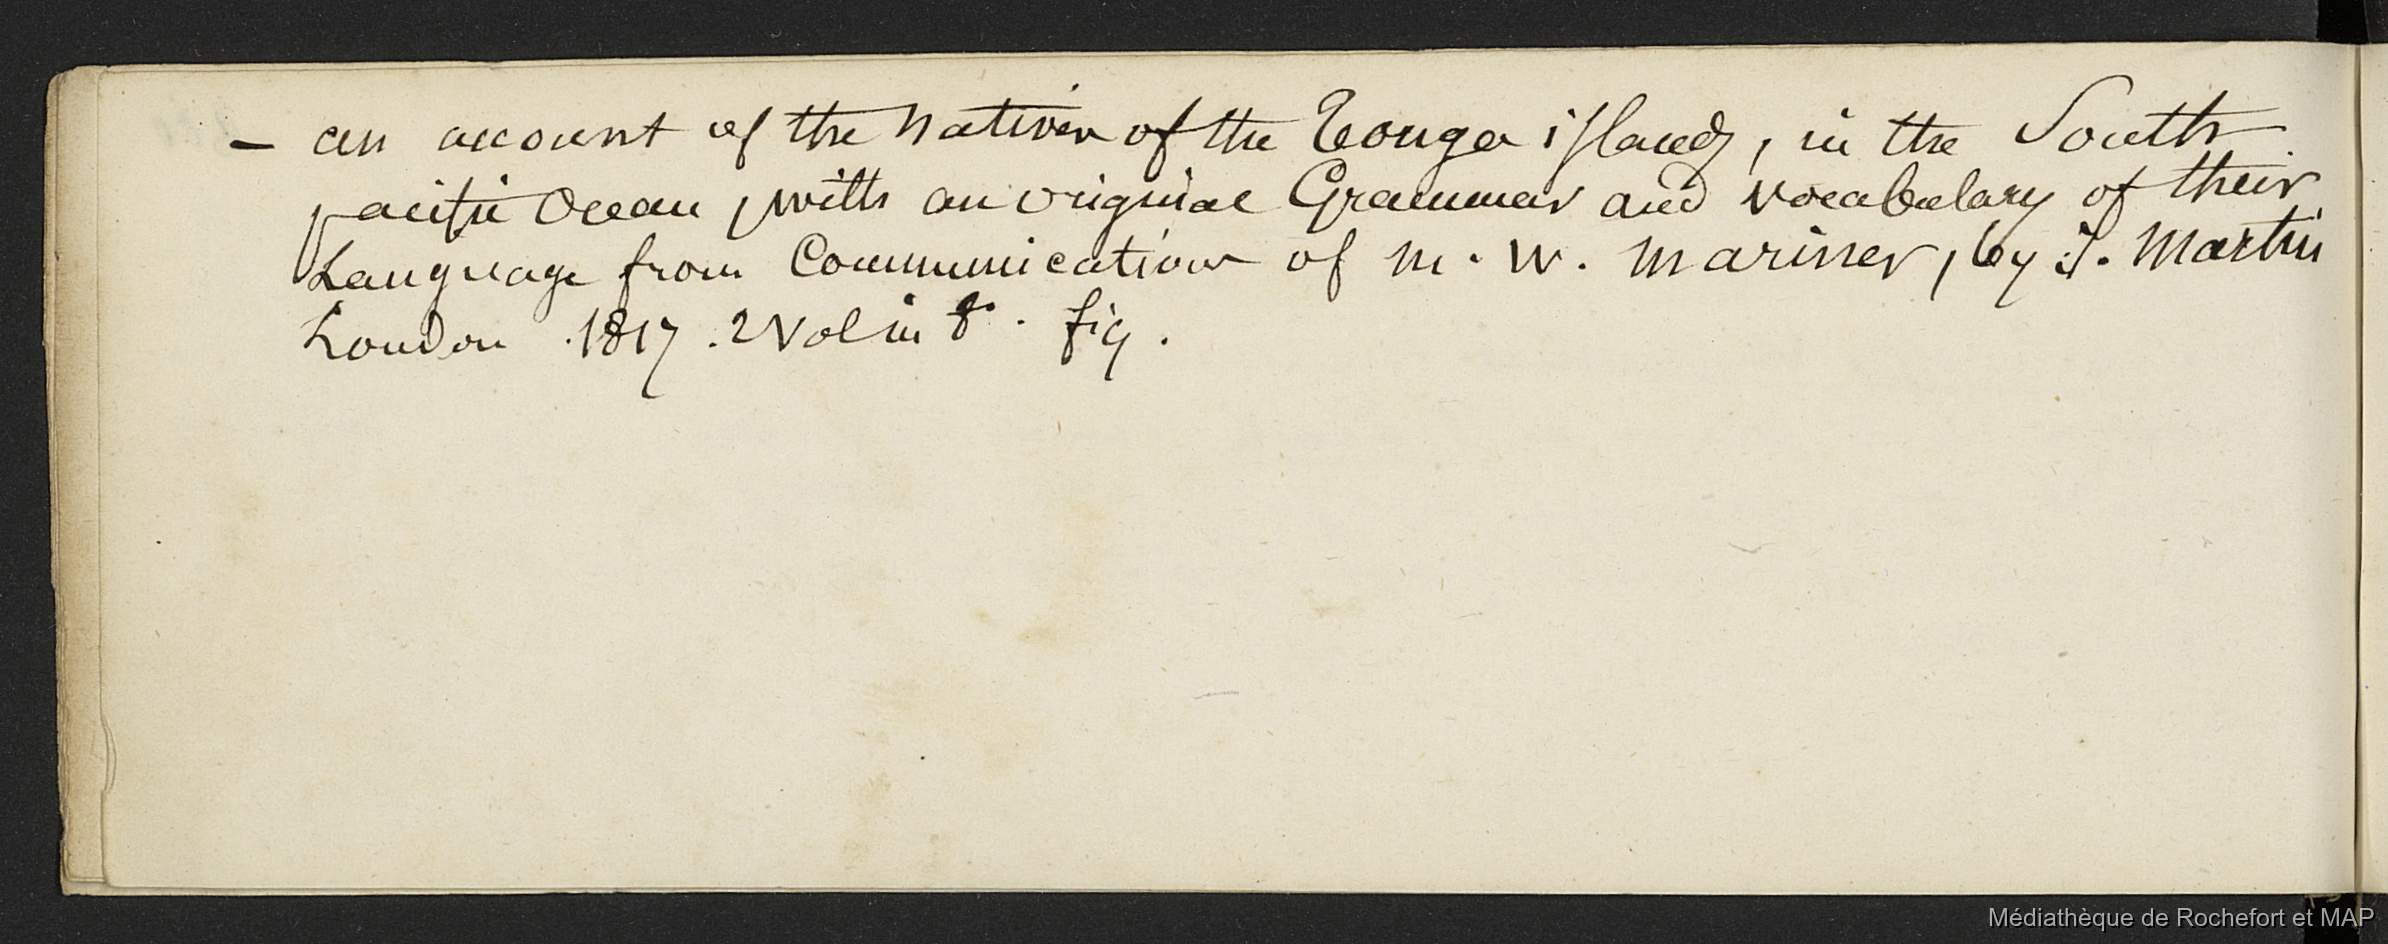 – an account of the natives of the Tonga islands, in the South
pacific Ocean, with an original Grammar and vocabulary of their
Language from Communication of m. W. mariner, by J. Martin
London . 1817 . 2 Vol in 8° . fig .
Médiathèque de Rochefort et MAP